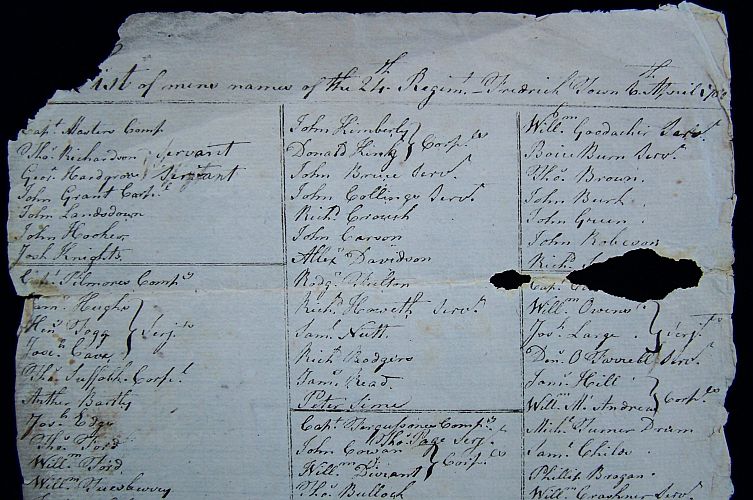 List of mens names of the 24th Regimt. - Fredrich Town 6th April 178
Capt. Masters Comp
Thos. Richardson Servant
Geor. Hardgrove Servant
John Grant Corpl.
John Landsdown
John Hooker
Josh. Knights
Capt. Pilmores Compy
Hughs
Henr. Fogg } Serjts
Joseh. Cave
Thos. Suffolk Corpl.
Anther Bartly
Josh. Edge
Thos. Ford
Willm. Ford
Willm. Tuesberry
John Kimberly } Corpls
Donald Kink
John Bruce Servt.
John Collings Servt.
Richd. Crouch
John Carson
Allexr. Davidson
Rodgr. Bilton
Richd. Howeth Servt.
Saml. Nutt
Richd. Rodgers
Jams. Read
Peter Sime
Capt. Fergussones Compy
Thos. Page Serj.
John Cowan } Corpls
Willm. Durant
Thos. Bulloch
Willm. Goodacher Servt.
Boice Burn Servt.
Thos. Brown
John Burk
John Green
John Robeson
Richd.
Capt.
Willm. Owens } Serjts
Josh. Large
Dens. O Farrell Servt.
Jams. Hill } Corpls
Willm. Mc Andrew
Michl. Turner Drum
Saml. Childs
Phillip Brogan
Willm. Servt.